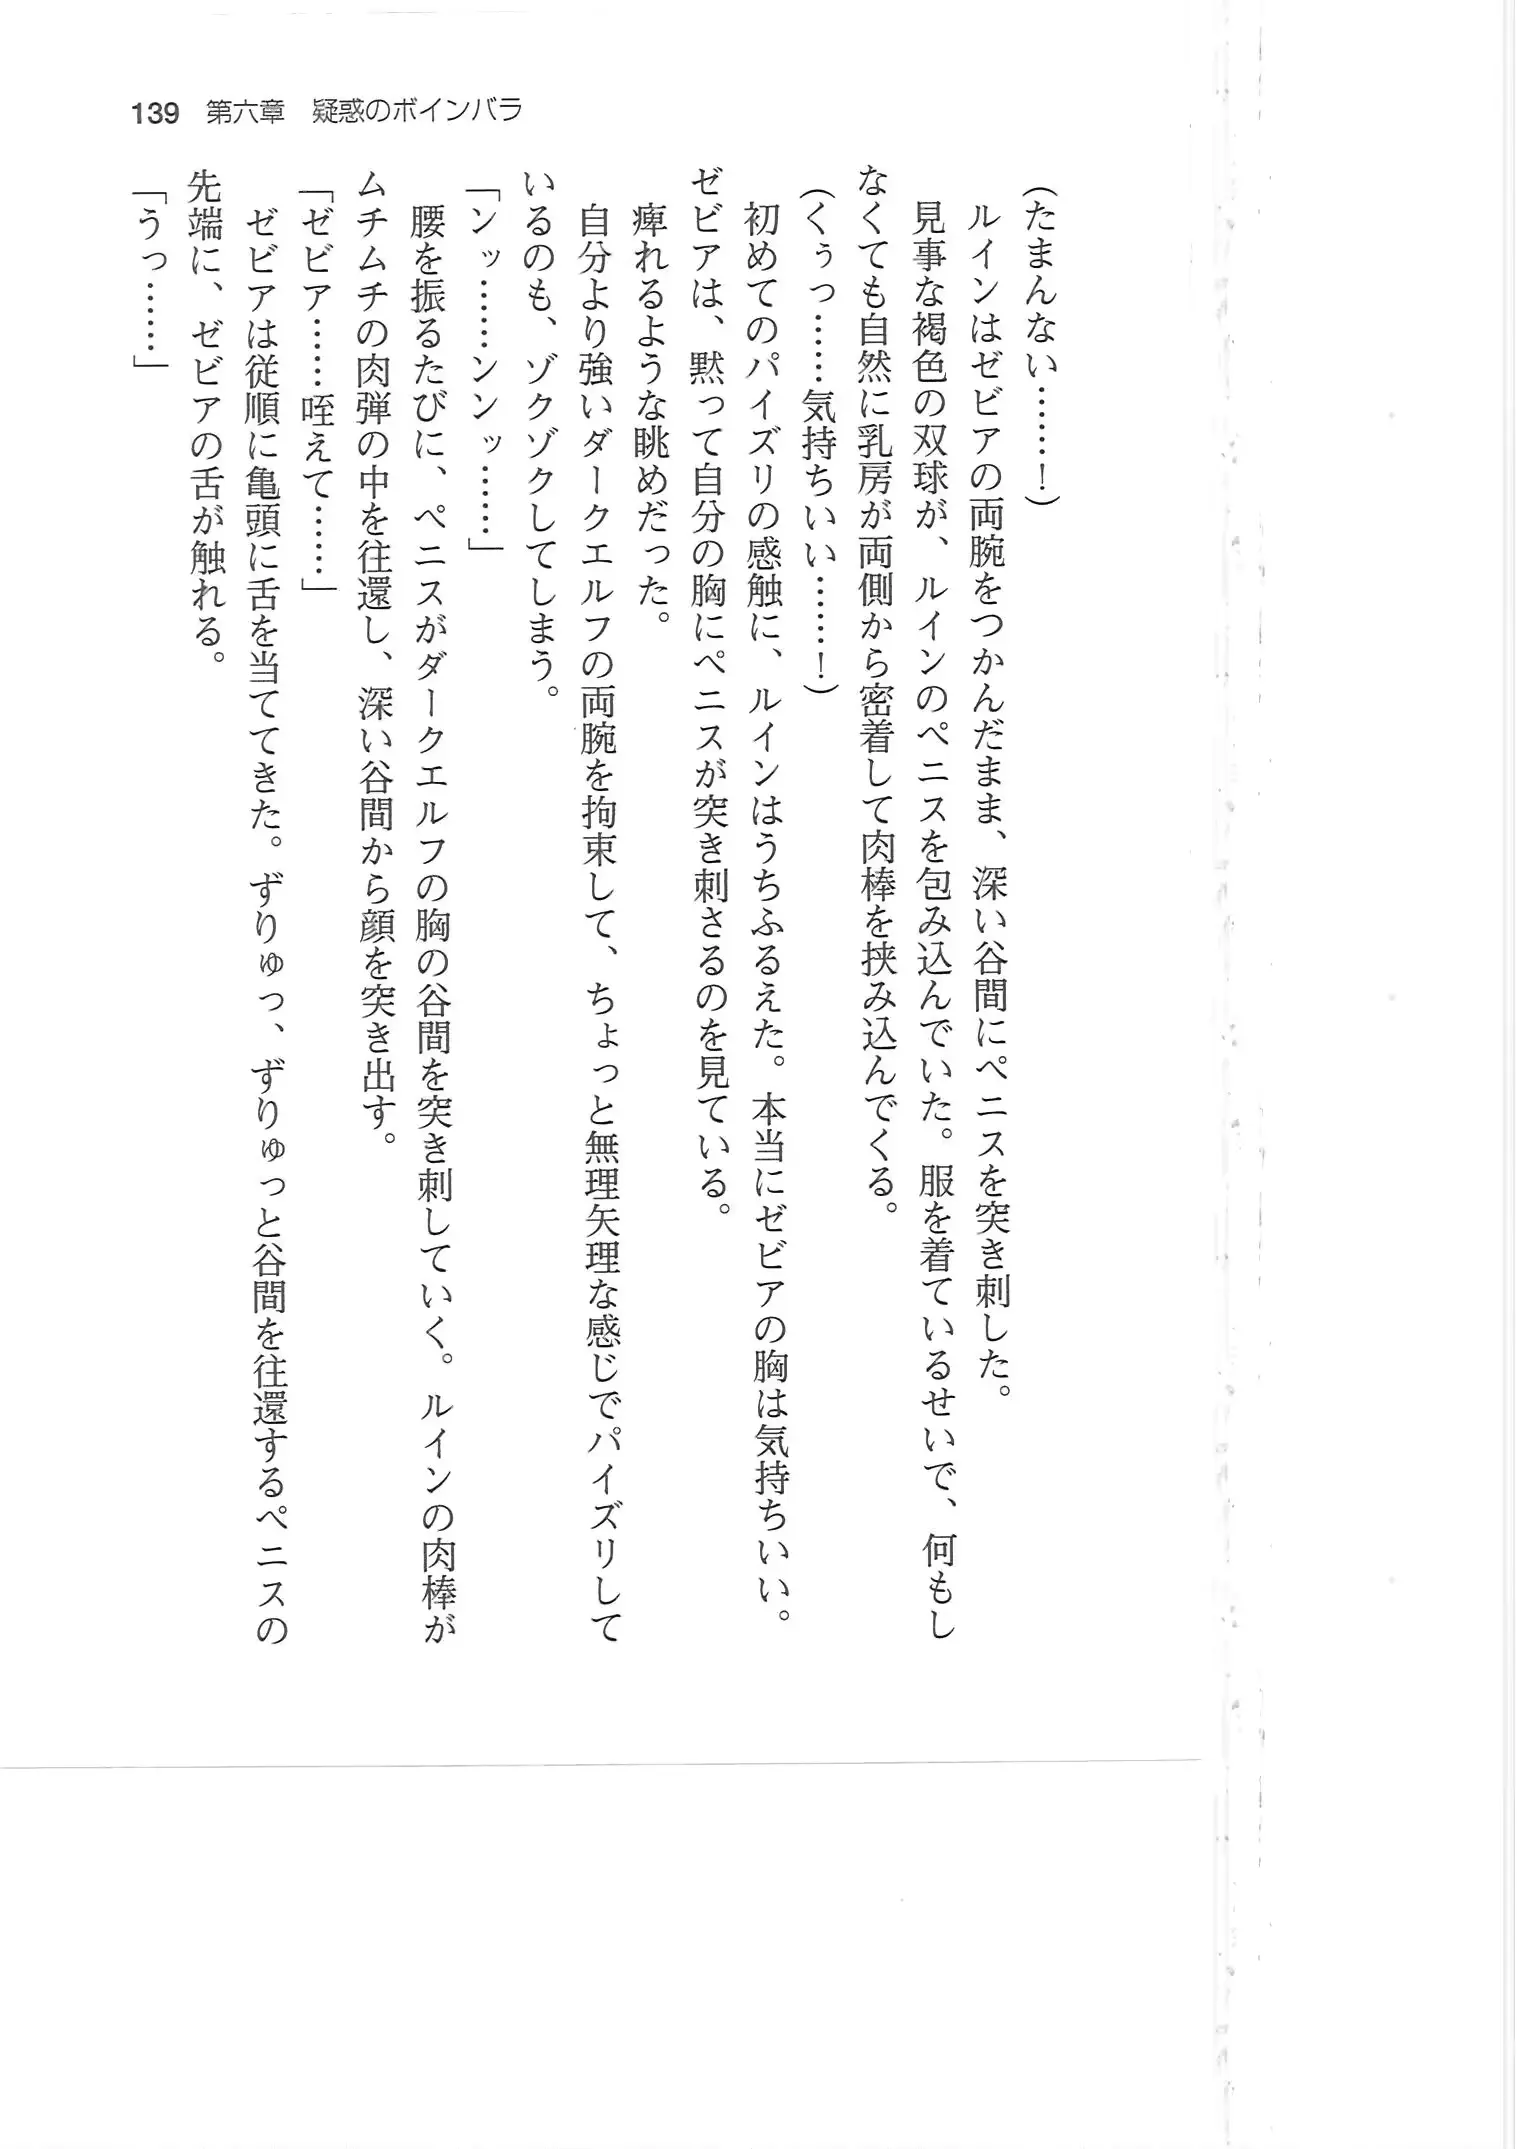 139 第六章 疑惑のボインバラ
(たまんない……！)
ルインはゼビアの両腕をつかんだまま、深い谷間にペニスを突き刺した。
見事な褐色の双球が、ルインのペニスを包み込んでいた。服を着ているせいで、何もし
なくても自然に乳房が両側から密着して肉棒を挟み込んでくる。
(くぅっ……気持ちいい……！)
初めてのパイズリの感触に、ルインはうちふるえた。本当にゼビアの胸は気持ちいい。
ゼビアは、黙って自分の胸にペニスが突き刺さるのを見ている。
痺れるような眺めだった。
自分より強いダークエルフの両腕を拘束して、ちょっと無理矢理な感じでパイズリして
いるのも、ゾクゾクしてしまう。
「ンッ……ンンッ……」
腰を振るたびに、ペニスがダークエルフの胸の谷間を突き刺していく。ルインの肉棒が
ムチムチの肉弾の中を往還し、深い谷間から顔を突き出す。
「ゼビア……咥えて……」
ゼビアは従順に亀頭に舌を当ててきた。ずりゅっ、ずりゅっと谷間を往還するペニスの
先端に、ゼビアの舌が触れる。
「うっ……」